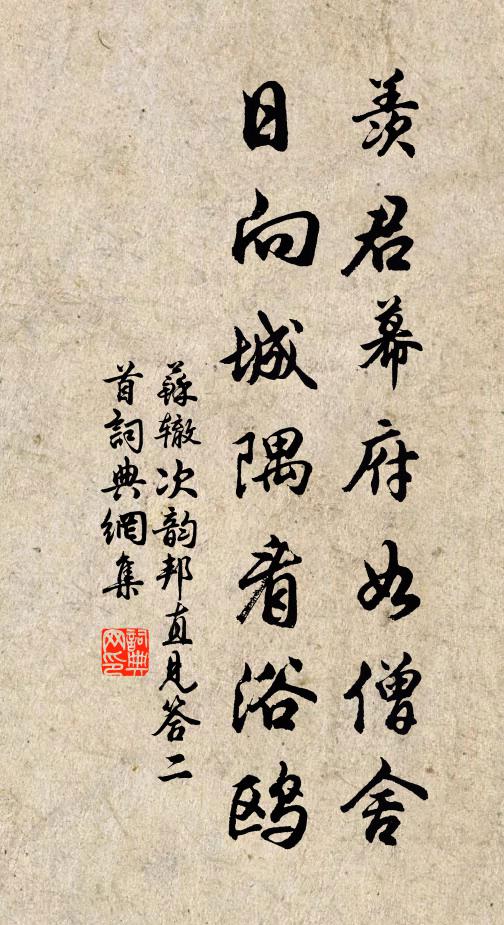 羨君幕府如僧舍
日向城隅看浴鷗
蘇轍次韵邦直見答二
首詞典網集
詞典网印